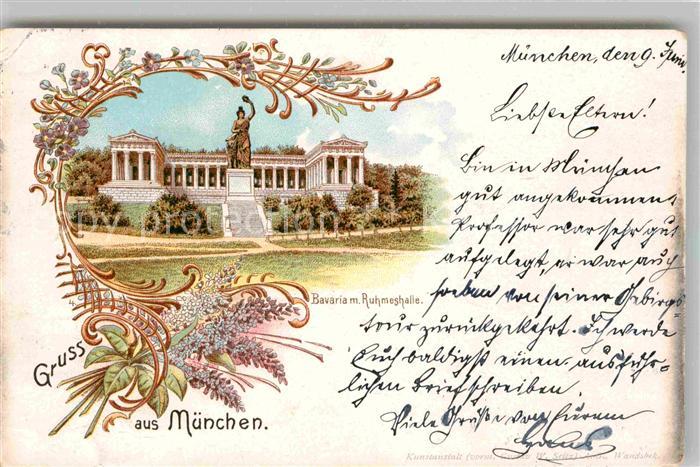 München, den 9. Juni.
Liebste Eltern!
Bin in München
gut angekommen
Professor war sehr gut
aufgelegt, er war auch
soeben von seiner Gebirgs-
tour zurückgekehrt. Ich werde
Euch baldigst einen ausführ-
lichen Brief schreiben.
Viele Grüße von Eurem
Hans
Bavaria m. Ruhmeshalle.
Gruss
aus München.
Kunstanstalt (vorm. Gustav W. Seitz) Wandsbek.